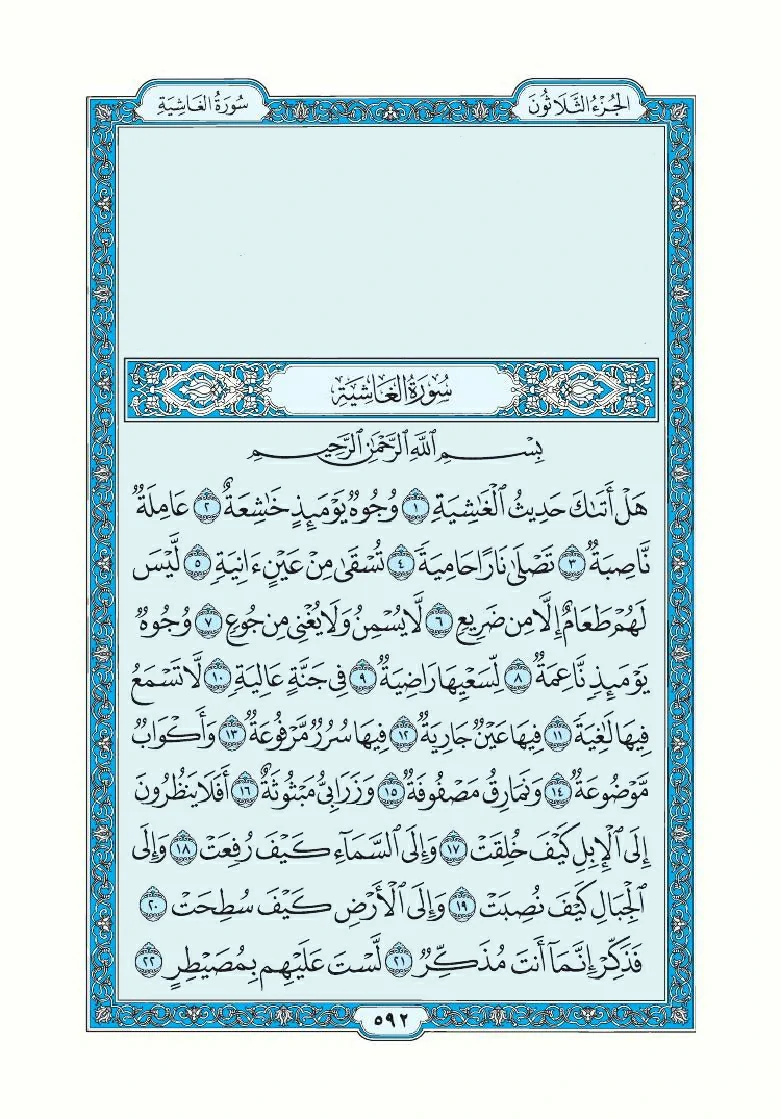 الجُزْءُ الثَّلَاثُونَ
سُورَةُ الغَاشِيَةِ
سُورَةُ الغَاشِيَةِ
بِسْمِ ٱللَّهِ ٱلرَّحْمَٰنِ ٱلرَّحِيمِ
هَلْ أَتَىٰكَ حَدِيثُ ٱلْغَٰشِيَةِ ١ وُجُوهٌ يَوْمَئِذٍ خَٰشِعَةٌ ٢ عَامِلَةٌ
نَّاصِبَةٌ ٣ تَصْلَىٰ نَارًا حَامِيَةً ٤ تُسْقَىٰ مِنْ عَيْنٍ ءَانِيَةٍ ٥ لَّيْسَ
لَهُمْ طَعَامٌ إِلَّا مِن ضَرِيعٍ ٦ لَّا يُسْمِنُ وَلَا يُغْنِي مِن جُوعٍ ٧ وُجُوهٌ
يَوْمَئِذٍ نَّاعِمَةٌ ٨ لِّسَعْيِهَا رَاضِيَةٌ ٩ فِي جَنَّةٍ عَالِيَةٍ ١٠ لَّا تَسْمَعُ
فِيهَا لَٰغِيَةً ١١ فِيهَا عَيْنٌ جَارِيَةٌ ١٢ فِيهَا سُرُرٌ مَّرْفُوعَةٌ ١٣ وَأَكْوَابٌ
مَّوْضُوعَةٌ ١٤ وَنَمَارِقُ مَصْفُوفَةٌ ١٥ وَزَرَابِيُّ مَبْثُوثَةٌ ١٦ أَفَلَا يَنظُرُونَ
إِلَى ٱلْإِبِلِ كَيْفَ خُلِقَتْ ١٧ وَإِلَى ٱلسَّمَآءِ كَيْفَ رُفِعَتْ ١٨ وَإِلَى
ٱلْجِبَالِ كَيْفَ نُصِبَتْ ١٩ وَإِلَى ٱلْأَرْضِ كَيْفَ سُطِحَتْ ٢٠
فَذَكِّرْ إِنَّمَآ أَنتَ مُذَكِّرٌ ٢١ لَّسْتَ عَلَيْهِم بِمُصَيْطِرٍ ٢٢
٥٩٢